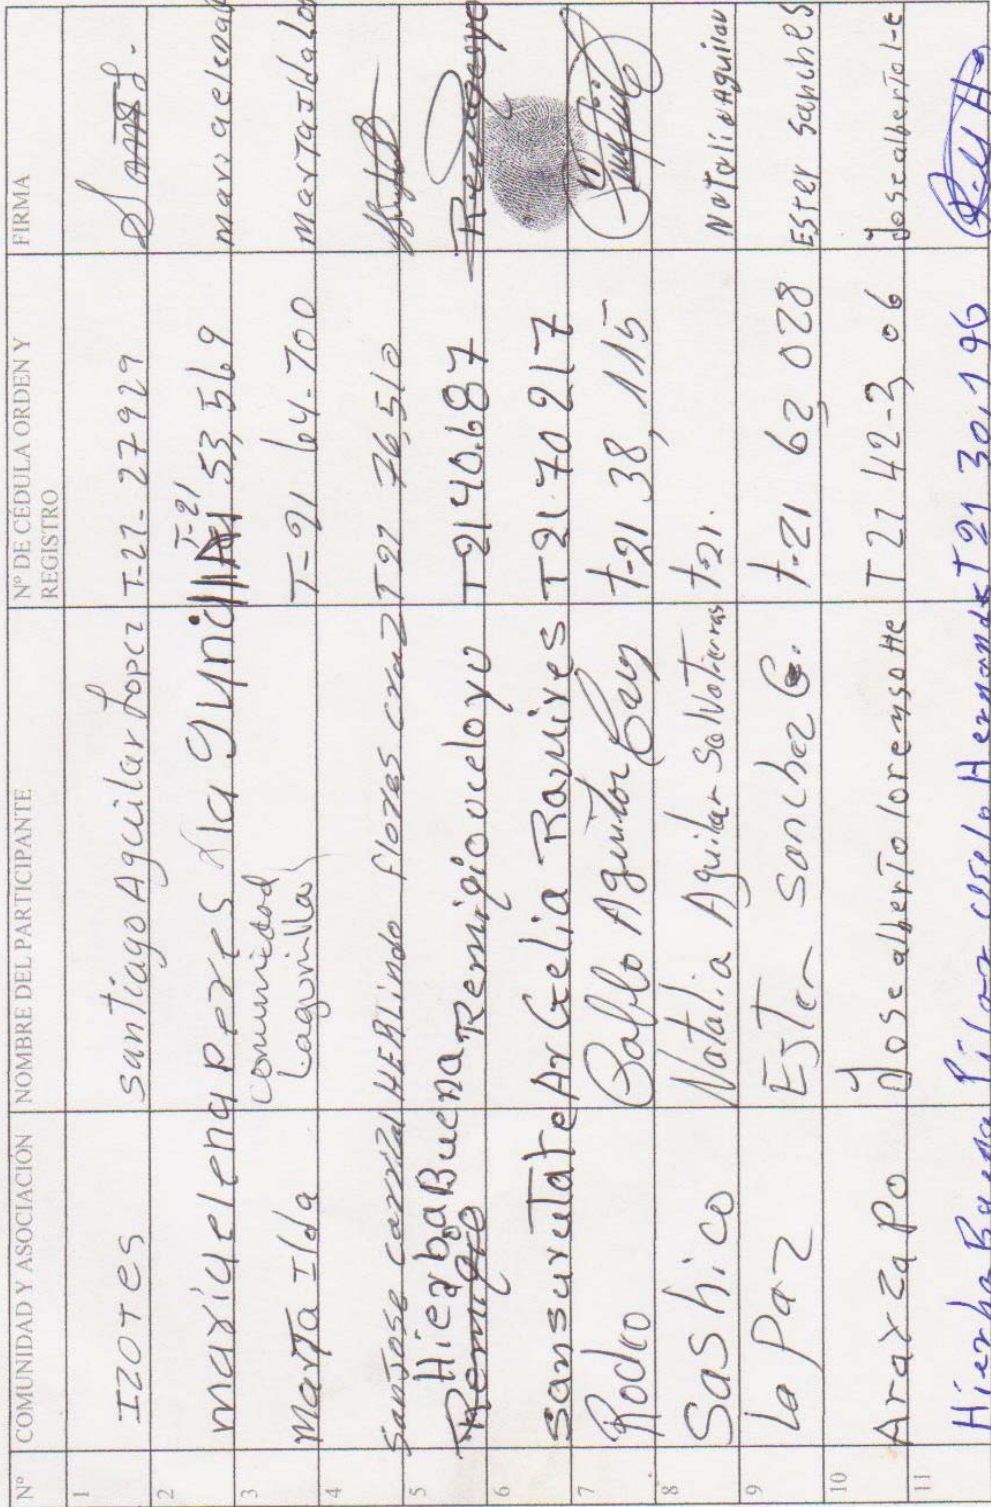 Nº COMUNIDAD Y ASOCIACIÓN NOMBRE DEL PARTICIPANTE Nº DE CÉDULA ORDEN Y REGISTRO FIRMA
1 IZOTES Santiago Aguilar Lopez T-21-27929
2 mariaelena Peres la gunilla T-21 53,569 mariaelena
3 Marta Ilda comunidad Lagunilla T=21 64-700 marta Ilda
4 San Jose carrizal HERLindo flores cruz T21 76,510
5 Hierba Buena Remigio uceloyu T-2140.687
6 Sansuretate Ar Gelia Ramires T21.70217
7 Rodeo Pablo Aguilar Cruz t-21 38,115
8 Sashico Natalia Aguilar t-21. Natalia Aguilar
9 La Paz Ester Sanchez G. t-21 62 028 Ester Sanches
10 Arazapo Jose alberto lorenso T21 42-3,06 Jose alberto l-e
11 Hierba Buena Pilar Hernandez T21 30,196